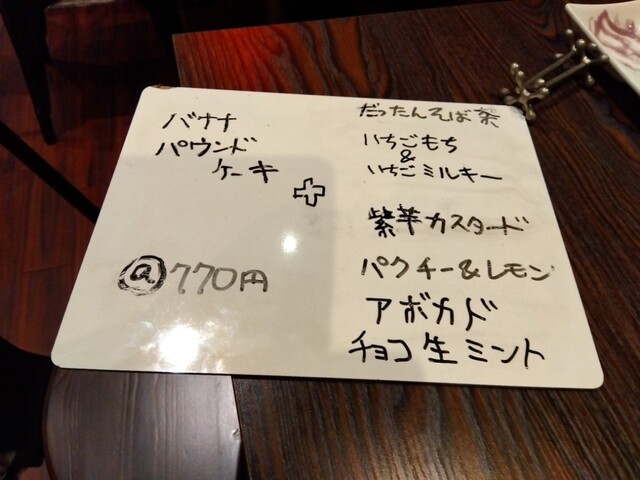 バナナ
パウンド
ケーキ
＋
@770円
だったんそば茶
いちごもち
&
いちごミルキー
紫芋カスタード
パクチー&レモン
アボカド
チョコ生ミント